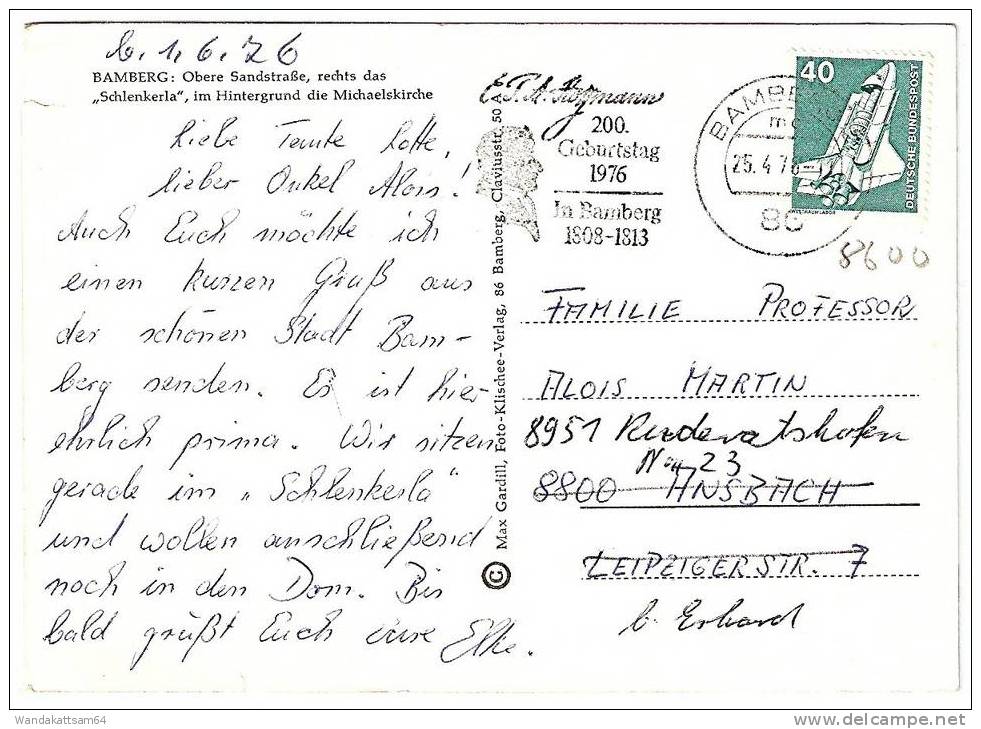 b. 1.6.76
BAMBERG: Obere Sandstraße, rechts das
„Schlenkerla“, im Hintergrund die Michaelskirche
Liebe Tante Lotte,
lieber Onkel Alois!
Auch Euch möchte ich
einen kurzen Gruß aus
der schönen Stadt Bam-
berg senden. Es ist hier
ehrlich prima. Wir sitzen
gerade im „Schlenkerla“
und wollen anschließend
noch in den Dom. Bis
bald grüßt Euch eure Elke.
© Max Gardill, Foto-Klischee-Verlag, 86 Bamberg, Claviusstr. 50 A
E.T.A. Hoffmann
200.
Geburtstag
1976
In Bamberg
1808-1813
BAMBERG
25.4.76
86
40
DEUTSCHE BUNDESPOST
WELTRAUMLABOR
8600
FAMILIE PROFESSOR
ALOIS MARTIN
8951 Ruderatshofen
No 23
8800 ANSBACH
LEIPZIGER STR. 7
b. Erhard
Wandakattsam64
www.delcampe.net